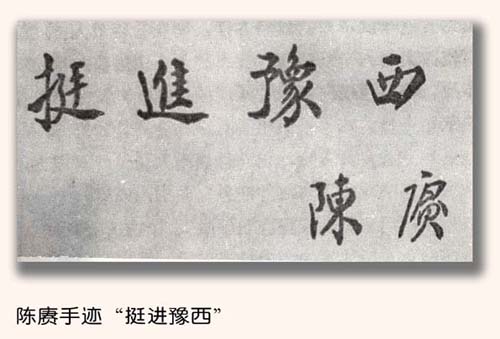 挺進豫西
陳賡
陈赓手迹“挺进豫西”